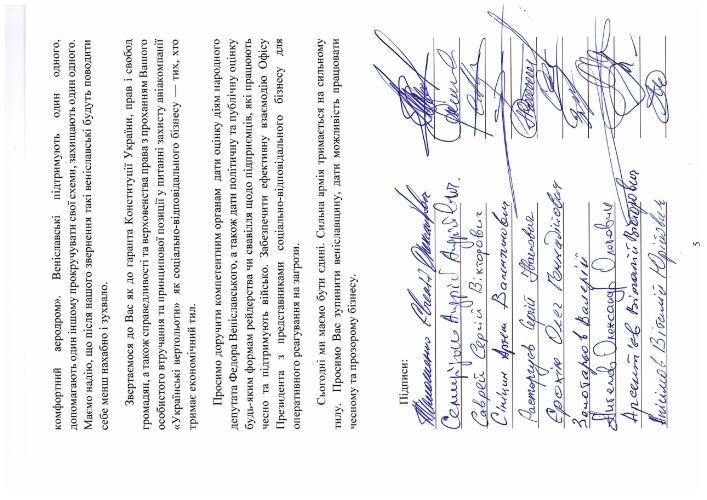 комфортний аеродром». Веніславські підтримують один одного,
допомагають один іншому прокручувати свої схеми, захищають один одного.
Маємо надію, що після нашого звернення такі веніславські будуть поводити
себе менш нахабно і зухвало.
Звертаємося до Вас як до гаранта Конституції України, прав і свобод
громадян, а також справедливості та верховенства права з проханням Вашого
особистого втручання та принципової позиції у питанні захисту авіакомпанії
«Українські вертольоти» як соціально-відповідального бізнесу — тих, хто
тримає економічний тил.
Просимо доручити компетентним органам дати оцінку діям народного
депутата Федора Веніславського, а також дати політичну та публічну оцінку
будь-яким формам рейдерства чи свавілля щодо підприємців, які працюють
чесно та підтримують військо. Забезпечити ефективну взаємодію Офісу
Президента з представниками соціально-відповідального бізнесу для
оперативного реагування на загрози.
Сьогодні ми маємо бути єдині. Сильна армія тримається на сильному
тилу. Просимо Вас зупинити веніславщину, дати можливість працювати
чесному та прозорому бізнесу.
Підписи:
Андрій Андрійович
Саврей Сергій Вікторович
Сініцин Артем Валентинович
Расторгуєв Сергій Іванович
Єрохін Олег Геннадійович
Валерій
Олександр Олегович
Арсентьєв Віталій Вікторович
Анісімов Віталій Юрійович
5